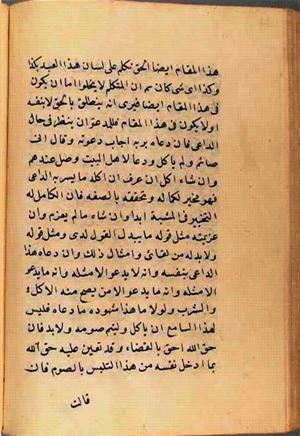 هذا المقام ايضا الحق تكلم على لسان هذا العبد بكذا
وكذا اى شى كان ثم ان المتكلم لا يخلوا اما ان يكون
فى هذا المقام ايضا فيرى انه ينطلق بالحق لا بنفسه
او لا يكون فى هذا المقام فللمدعو ان ينظر فى حال
الداعى فان دعاه بربه اجاب دعوته وقال انى
صائم ولم ياكل ودعا لاهل البيت وصلى عندهم
وان شاء اكل ان عرف ان اكله ما يسر به الداعى
فهو مخير لكماله وتحققه بالصفه فان الكامل له
التخيير فى المشية ابدا وان شاء ما لم يعزم وان
عزيمته مثل قوله ما يبدل القول لدى ومثل قوله
ولا بد له من لقائى وامثال ذلك وان دعاه هذا
الداعى بنفسه وانه لا يدعو الا مثله وانه ما يدعو
الا مثله وانه ما يدعو الا من يصح منه الاكل
والشرب ولولا ما هذا شهوده ما دعاه فليس
لهذا السامع ان ياكل وليتم صومه ولا بد فان
حق الله احق بالقضاء وقد تعين عليه حق الله
بما ادخل نفسه من هذا التلبس بالصوم فان
قالت